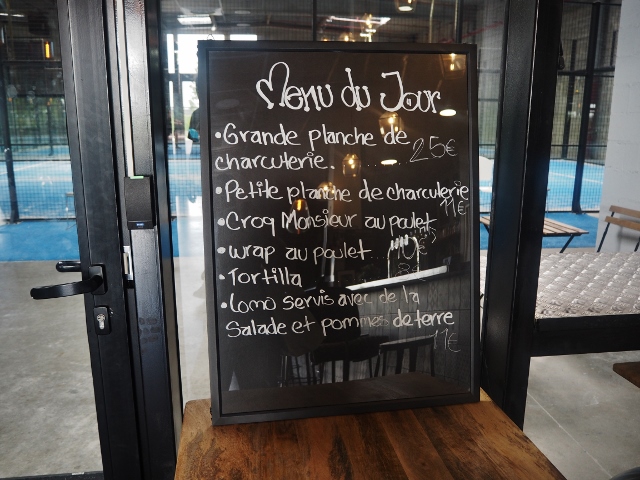 Menu du Jour
•Grande planche de
charcuterie. ..... 25€
•Petite planche de charcuterie
11€
•Croq Monsieur au poulet
•wrap au poulet
•Tortilla
•Lomo servis avec de la
Salade et pommes de terre
11€